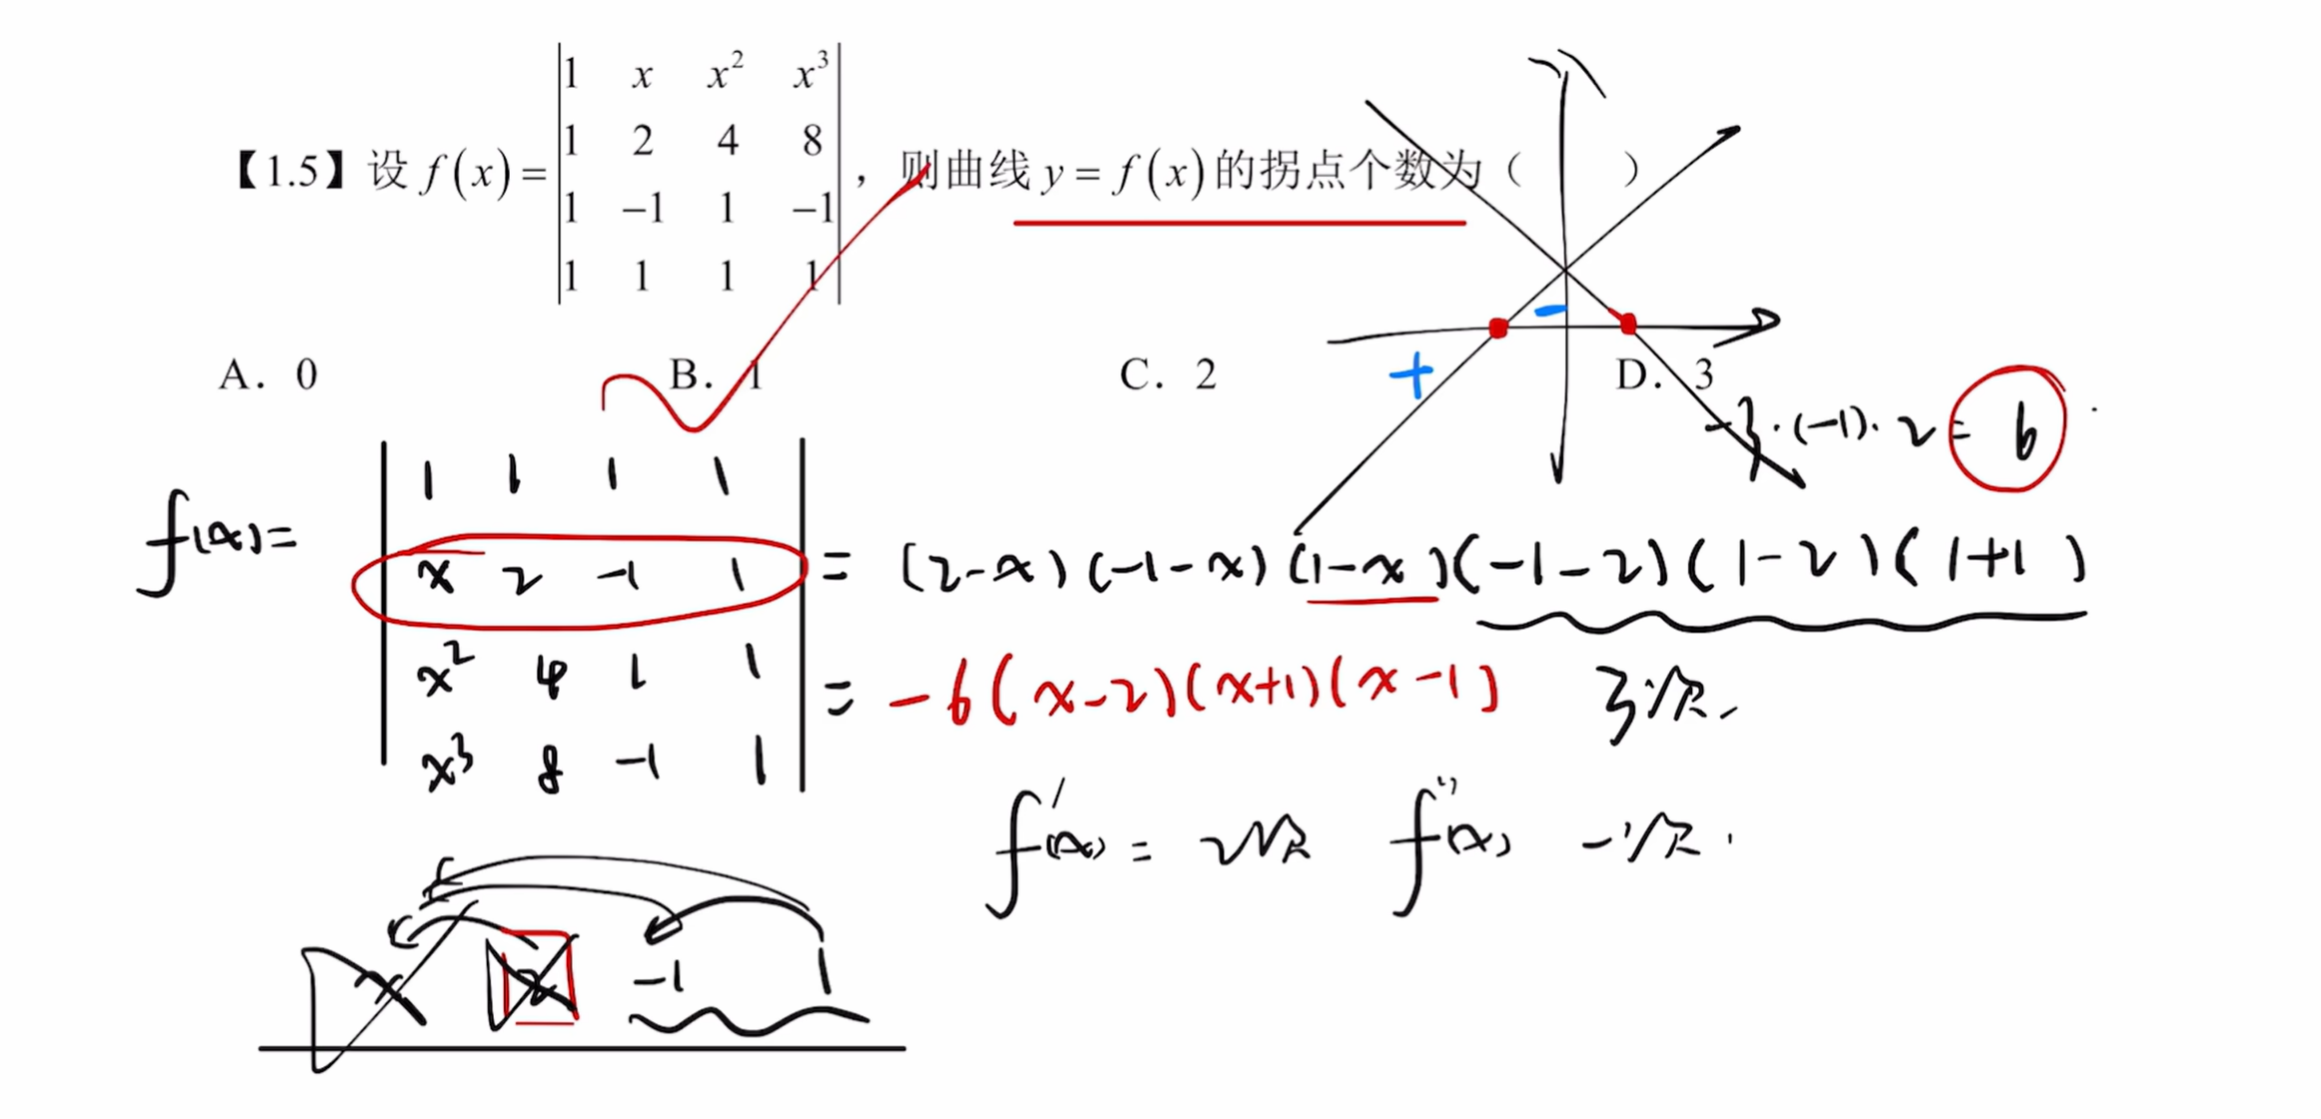 【1.5】设 f(x) = |1 x x² x³|
|1 2 4 8|
|1 −1 1 −1|
|1 1 1 1| ，则曲线 y = f(x) 的拐点个数为（ ）
A．0 B．1 C．2 D．3
-3·(-1)·2 = 6
+ -
f(x) = |1 1 1 1|
|x 2 -1 1|
|x² 4 1 1|
|x³ 8 -1 1|
= (2-x)(-1-x)(1-x)(-1-2)(1-2)(1+1)
= -6(x-2)(x+1)(x-1) 3次
f'(x) = 2次 f''(x) 一次
x 2 -1 1